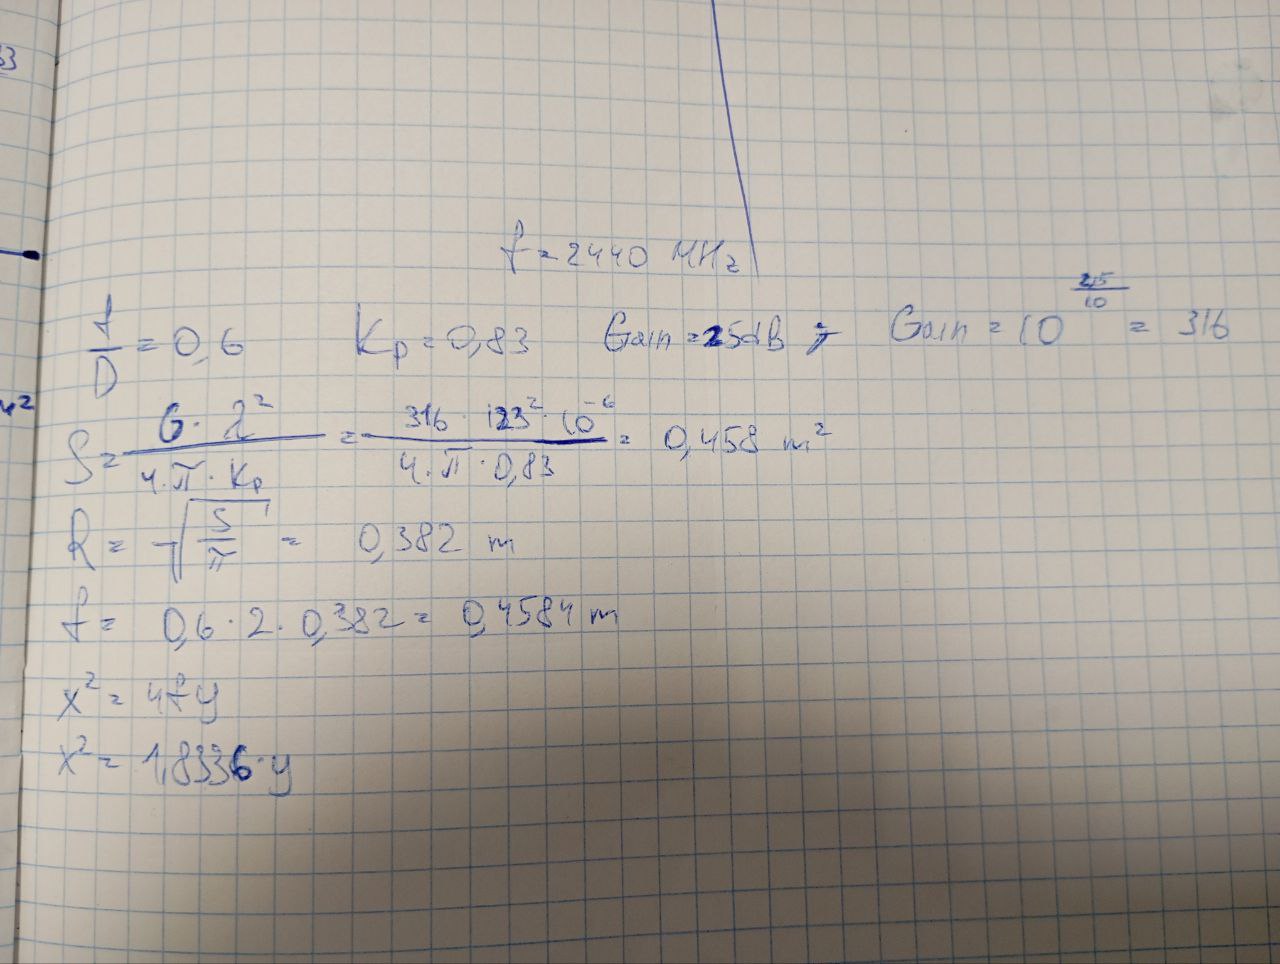 53
f = 2440 MHz
f/D = 0,6 Kp = 0,83 Gain = 25dB ; Gain = 10^(25/10) = 316
S = G · λ² / 4 · π · Kp = 316 · 123² · 10^-6 / 4 · π · 0,83 = 0,458 m²
R = √(S/π) = 0,382 m
f = 0,6 · 2 · 0,382 = 0,4584 m
x² = 4fy
x² = 1,8336 · y